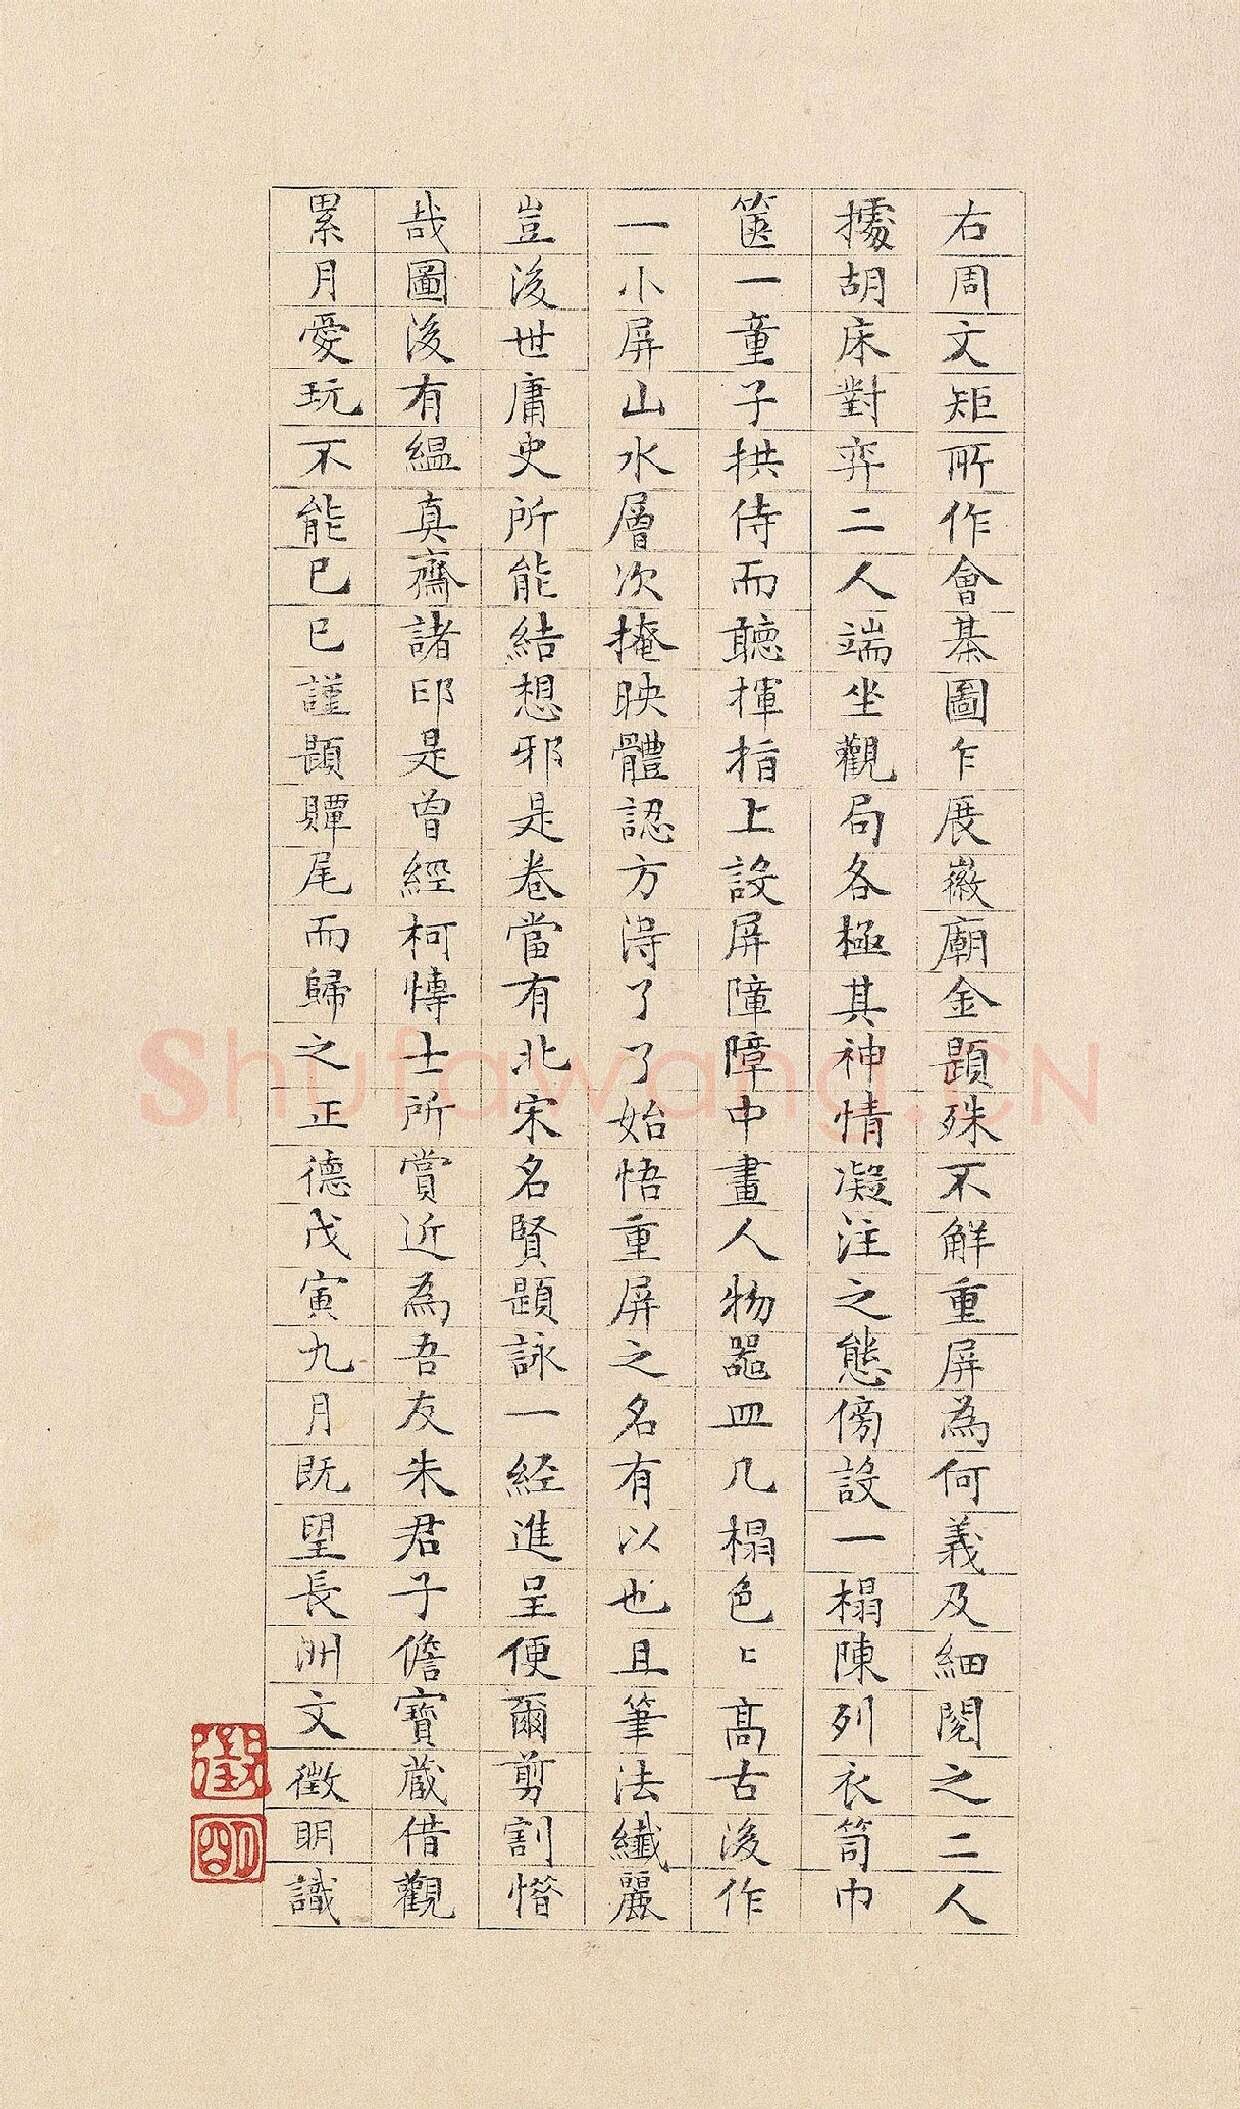 右周文矩所作會棊圖乍展徽廟金題殊不解重屏為何義及細閱之二人
據胡床對弈二人端坐觀局各極其神情凝注之態傍設一榻陳列衣笥巾
篋一童子拱侍而聽揮指上設屏障障中畫人物器皿几榻色〻高古後作
一小屏山水層次掩映體認方得了了始悟重屏之名有以也且筆法纖麗
豈後世庸史所能結想邪是卷當有北宋名賢題詠一経進呈便爾剪割惜
哉圖後有縕真齋諸印是曾經柯博士所賞近為吾友朱君子儋寶蔵借觀
累月愛玩不能已已謹題贉尾而歸之正德戊寅九月既望長洲文徵明識
徵
明
Shufawang.CN